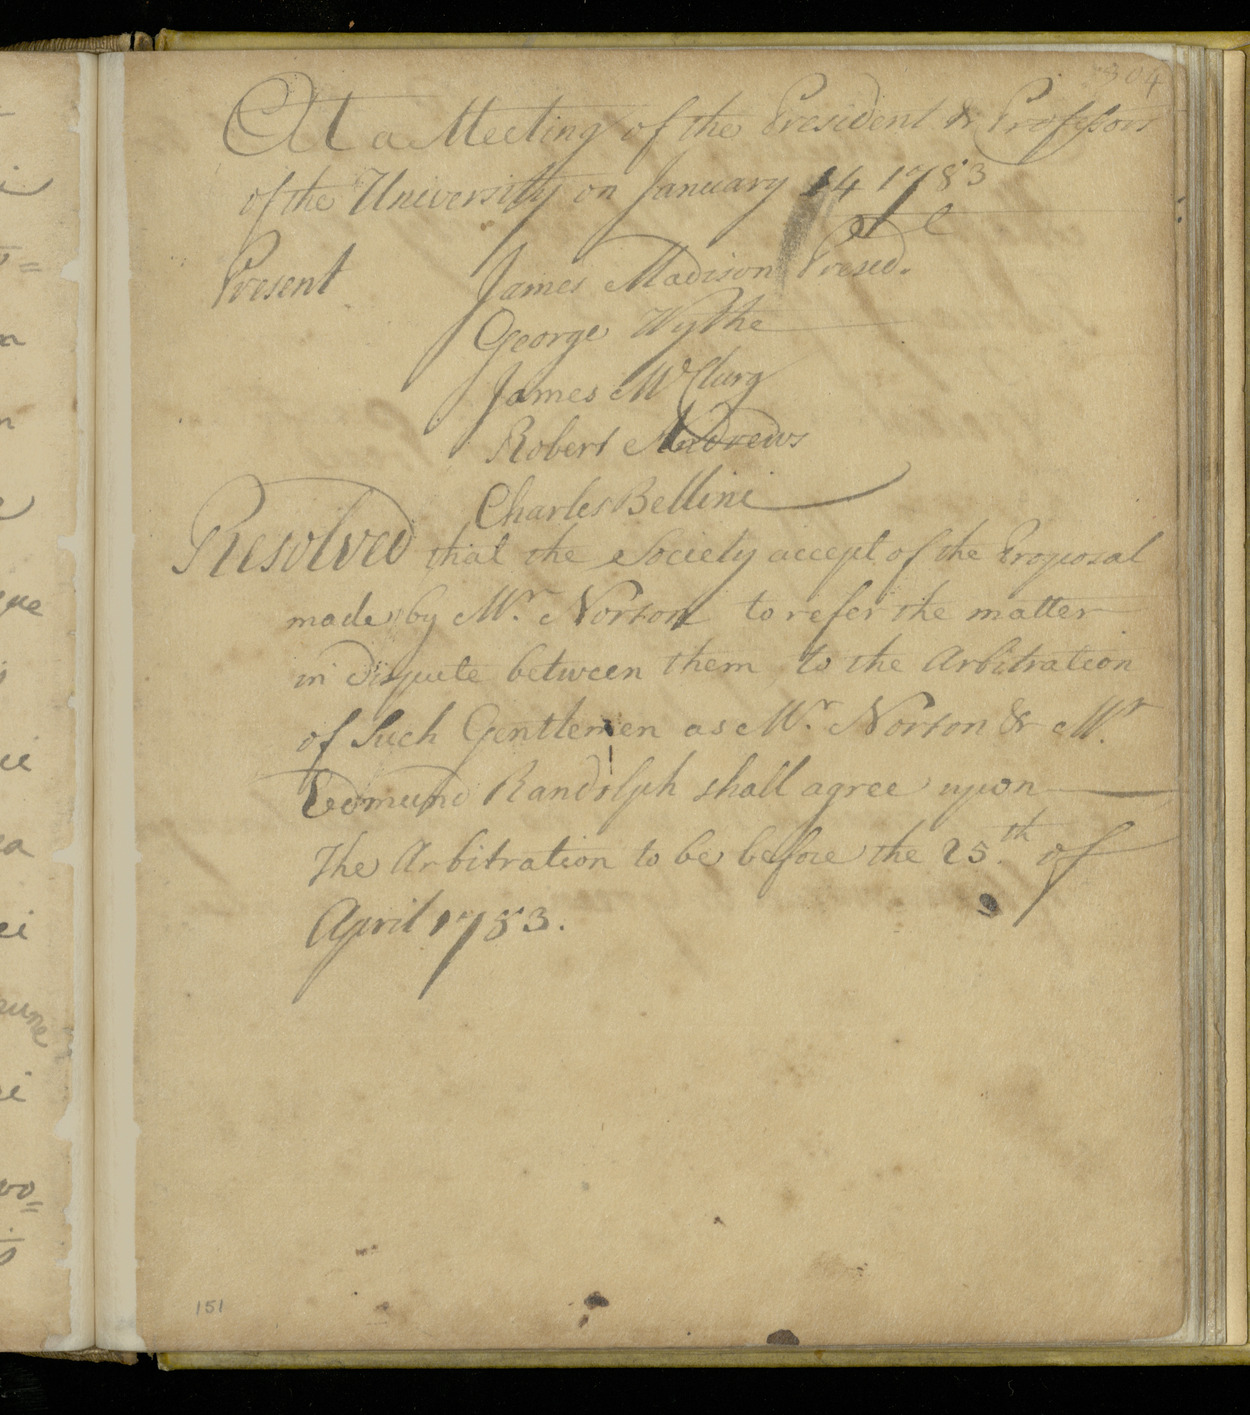 304
At a Meeting of the President & Professors
of the University on January 14 1783
Present James Madison Presid.
George Wythe
James McClurg
Robert Andrews
Charles Bellini
Resolved that the Society accept of the Proposal
made by Mr. Norton to refer the matter
in Dispute between them to the Arbitration
of Such Gentlemen as Mr. Norton & Mr.
Edmund Randolph shall agree upon
The Arbitration to be before the 25.th of
April 1783.
151